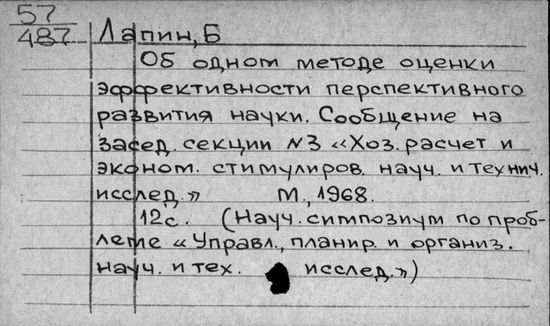 57
487 Лапин, Б
Об одном методе оценки
эффективности перспективного
развития науки. Сообщение на
засед. секции N3 «Хоз. расчет и
эконом. стимулиров. науч. и технич.
исслед.» М., 1968.
12с. (Науч. симпозиум по проб-
леме «Управл., планир. и организ.
науч. и тех. исслед.»)